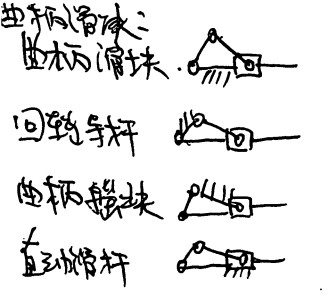 曲柄滑块:
曲柄滑块
回转导杆
曲柄摇块
直动滑杆